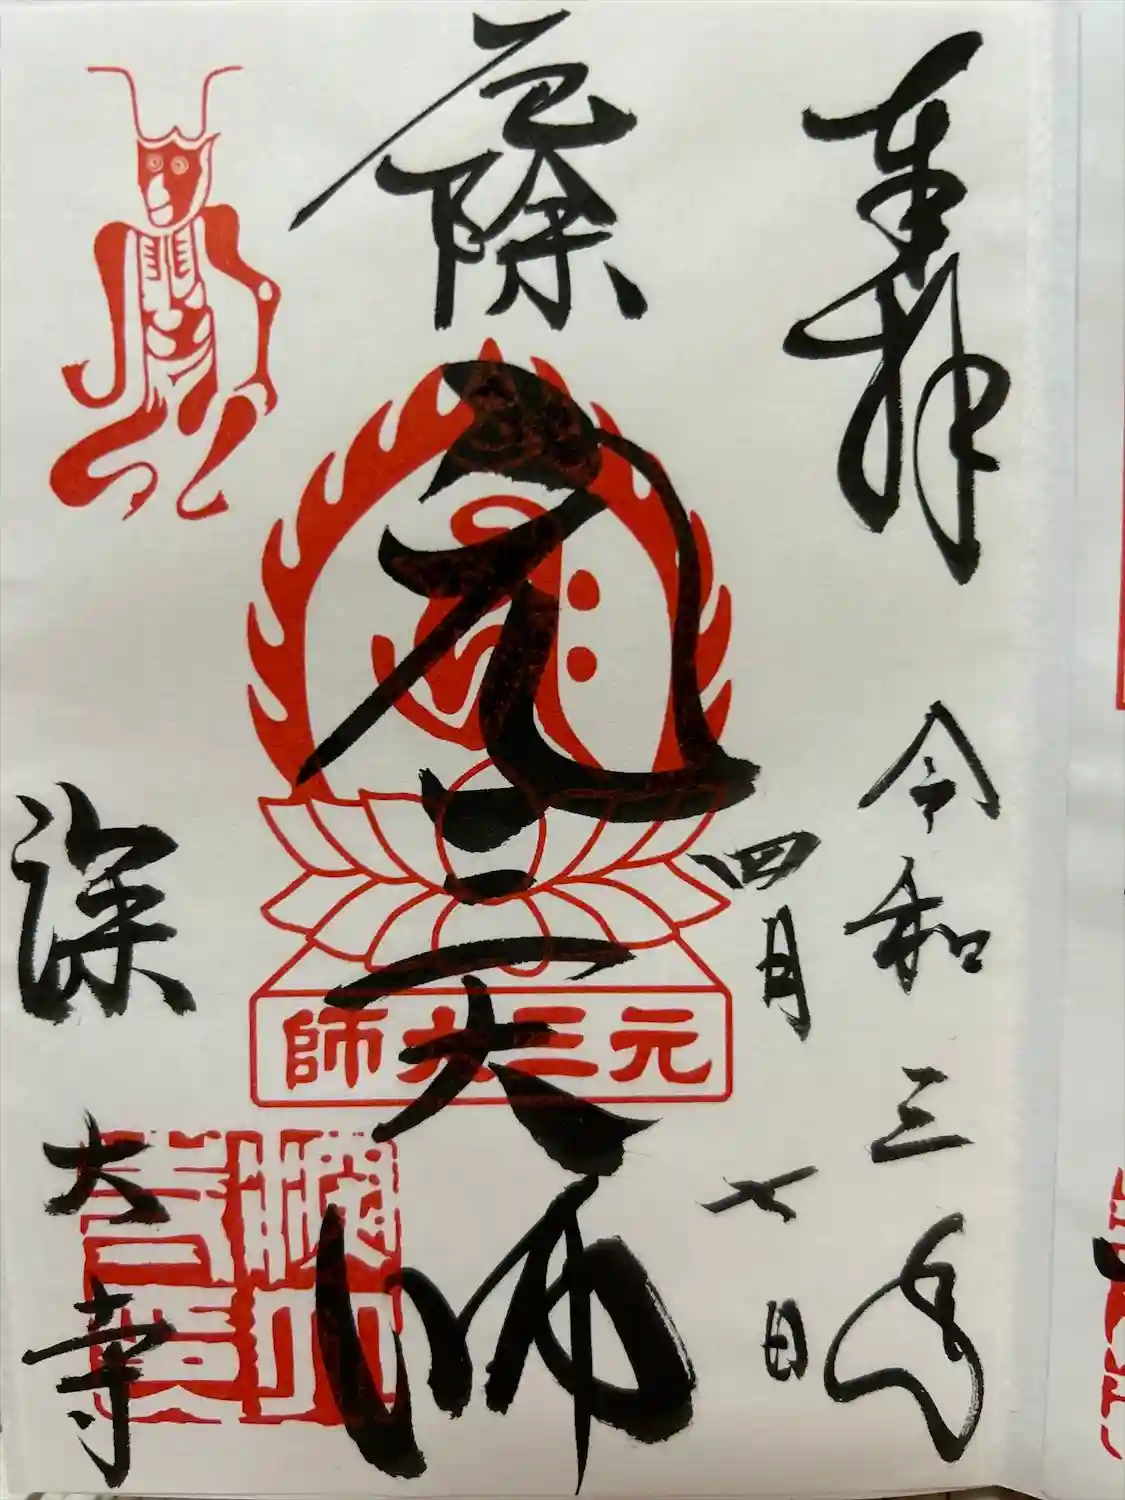 奉拝
令和三年
四月七日
厄除
元三大師
元三大師
深大寺